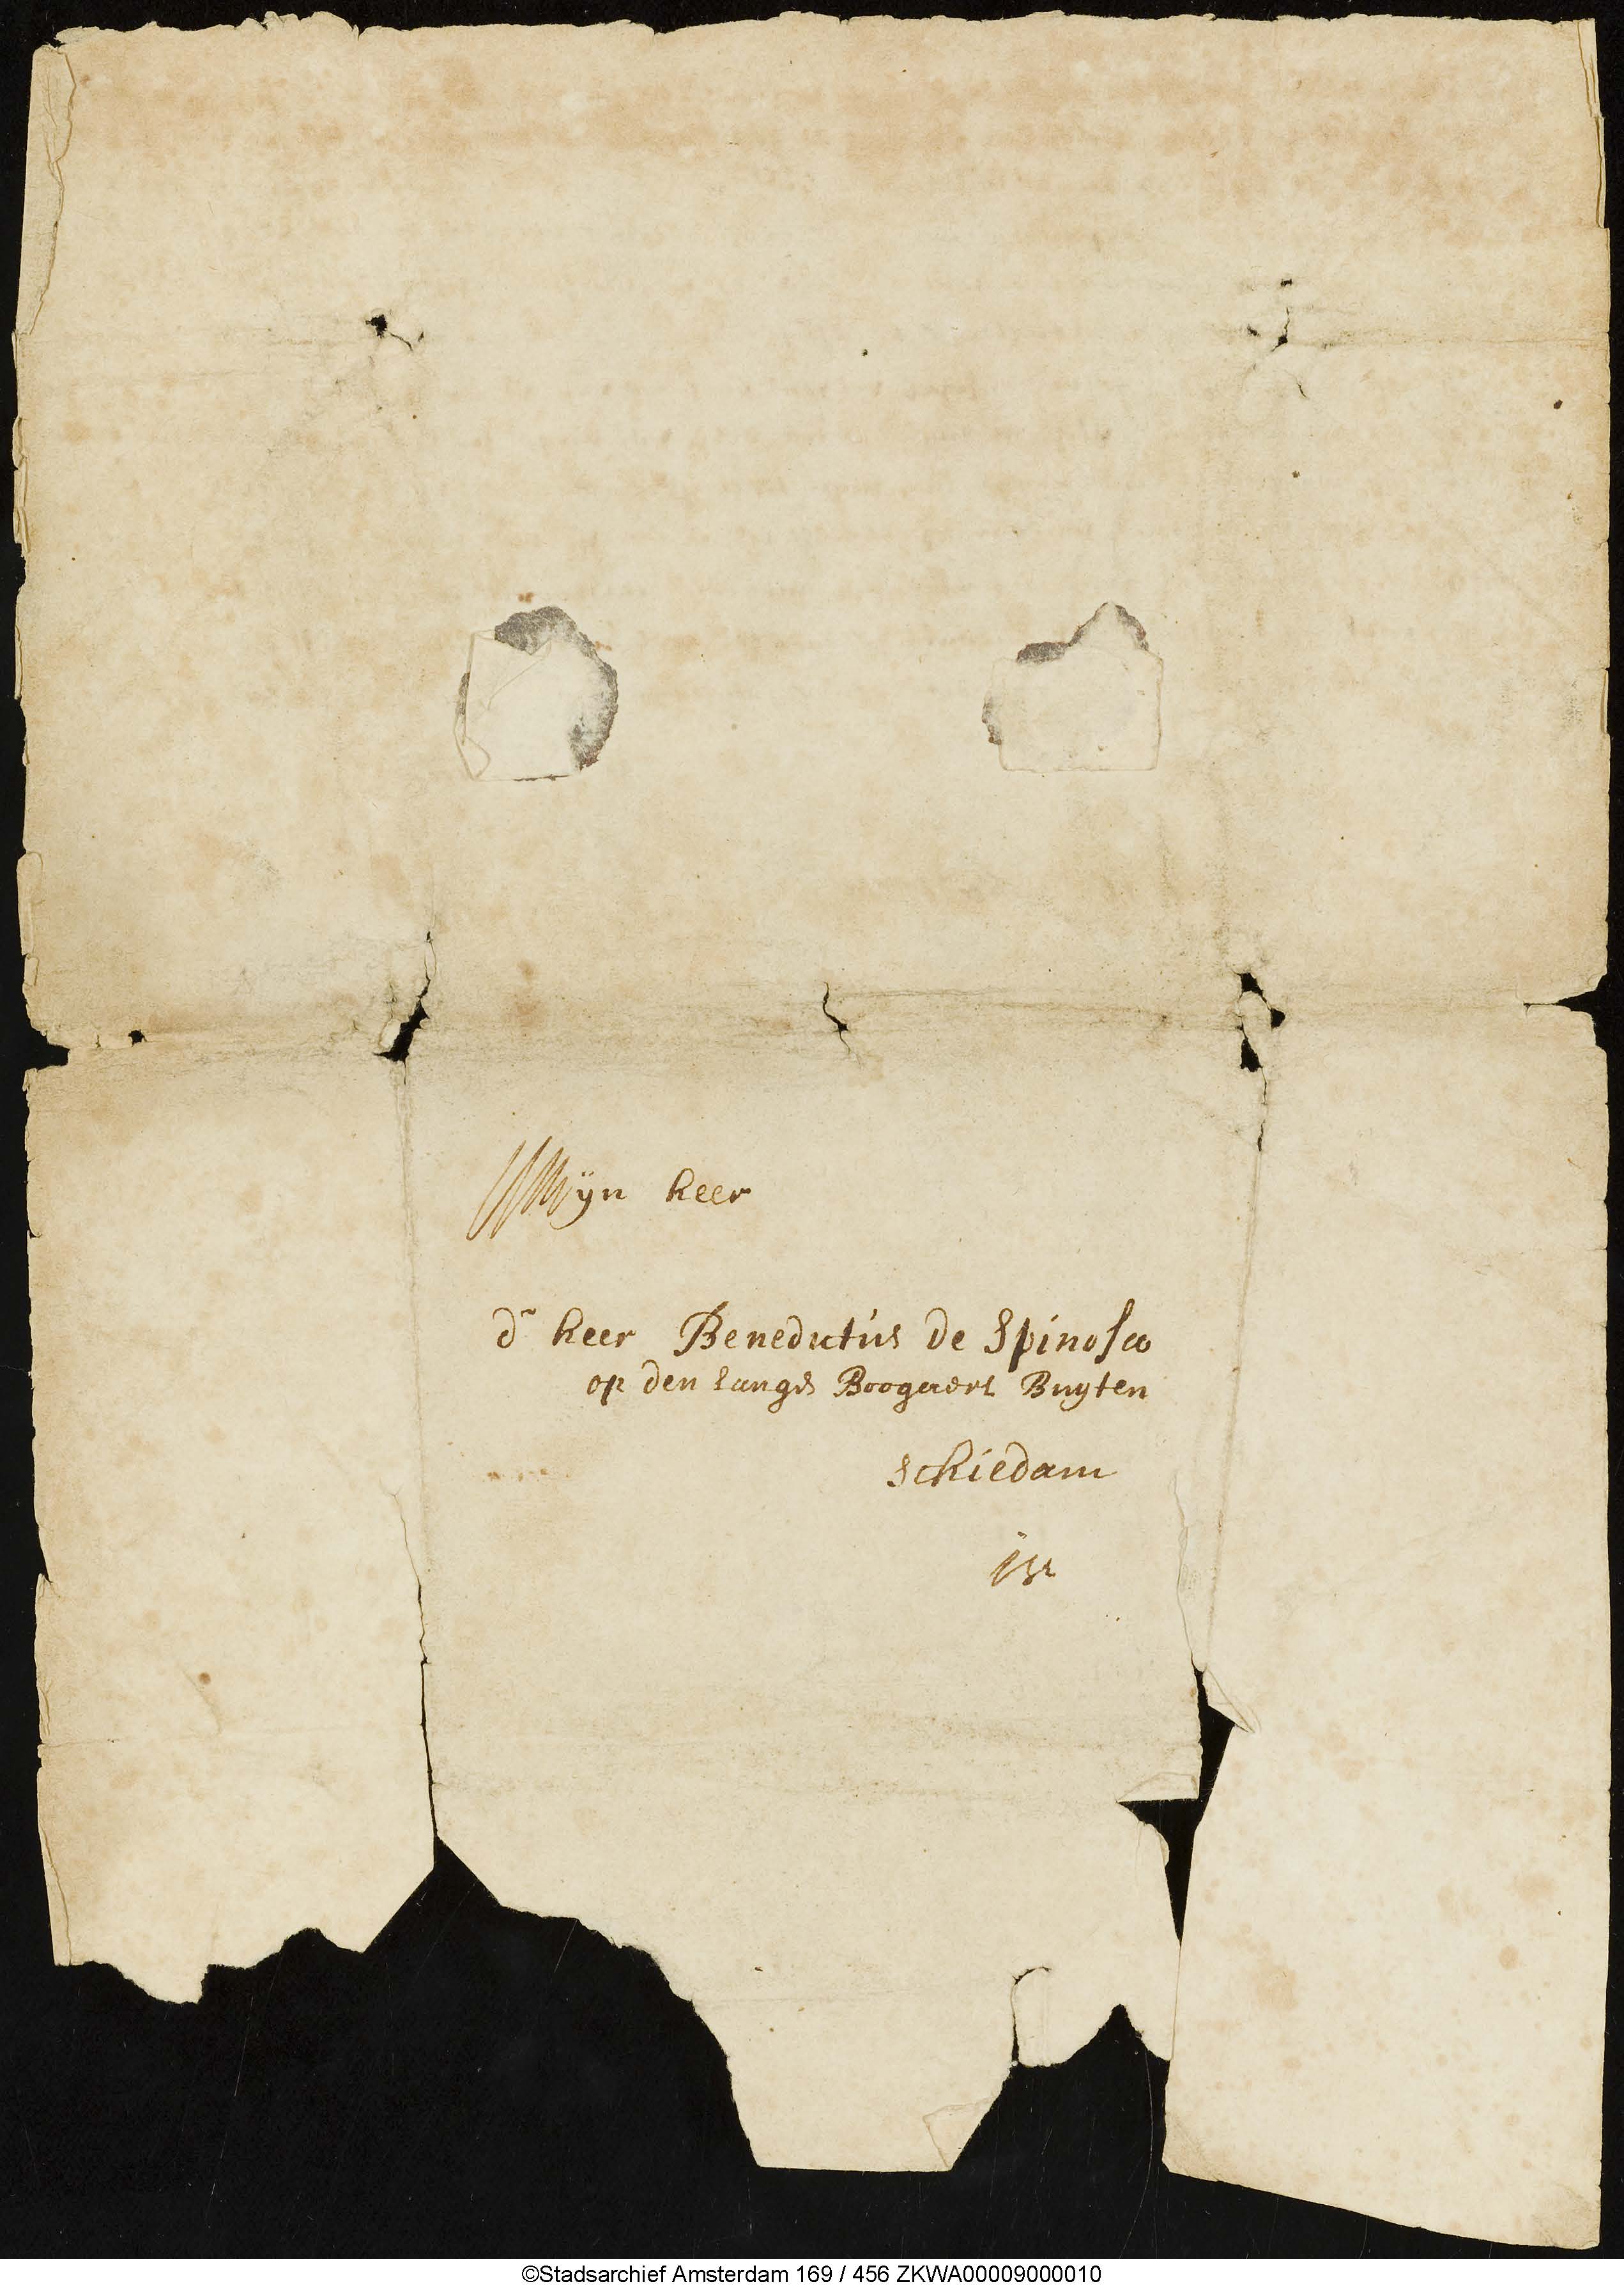 Mijn heer
dr heer Benedictus de Spinosa
op den Lange Boogaert Buyten
Schiedam
©Stadsarchief Amsterdam 169 / 456 ZKWA00009000010